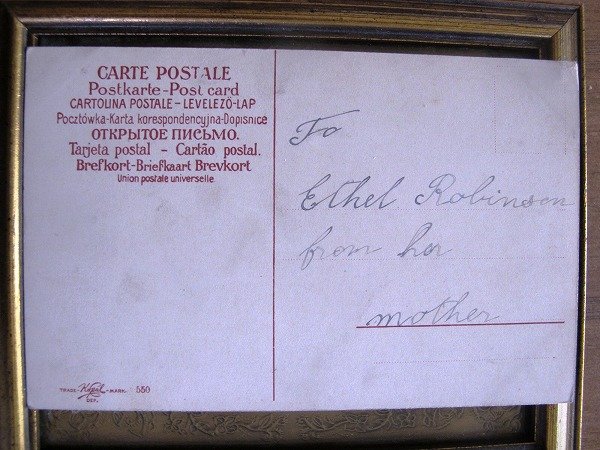 CARTE POSTALE
Postkarte-Post card
CARTOLINA POSTALE-LEVELEZŐ-LAP
Pocztówka-Karta korespondencyjna-Dopisnice
ОТКРЫТОЕ ПИСЬМО.
Tarjeta postal - Cartão postal.
Brefkort-Briefkaart Brevkort
Union postale universelle
To
Ethel Robinson
from her
mother
TRADE- -MARK 550
DEP.